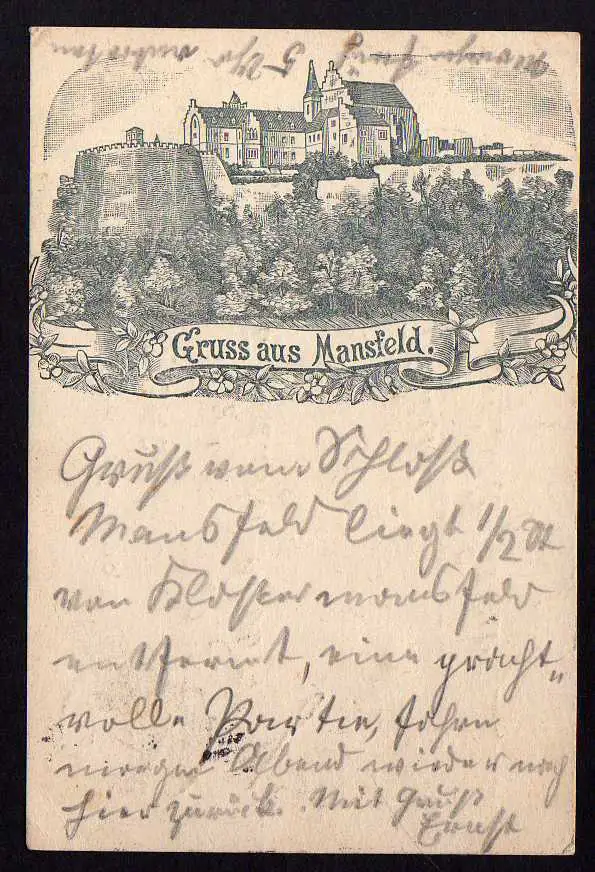 Gruss aus Mansfeld.
Gruß vom Schloß
Mansfeld liegt 1/2 St
von Klostermansfeld
entfernt, eine pracht-
volle Partie, fahre
morgen Abend wieder nach
hier zurück. Mit Gruß
Ernst
5 Uhr